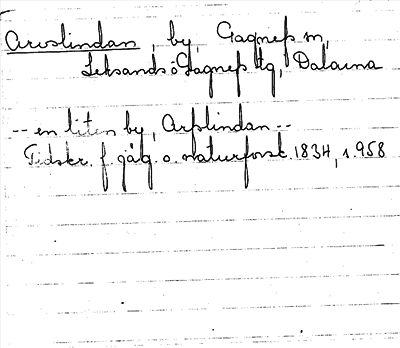 Arvslindan, by, Gagnefs sn,
Leksands o Gagnefs tg, Dalarna
-- en liten by, Arfslindan --
Tidskr. f. jäg. o. naturforsk. 1834, s. 958